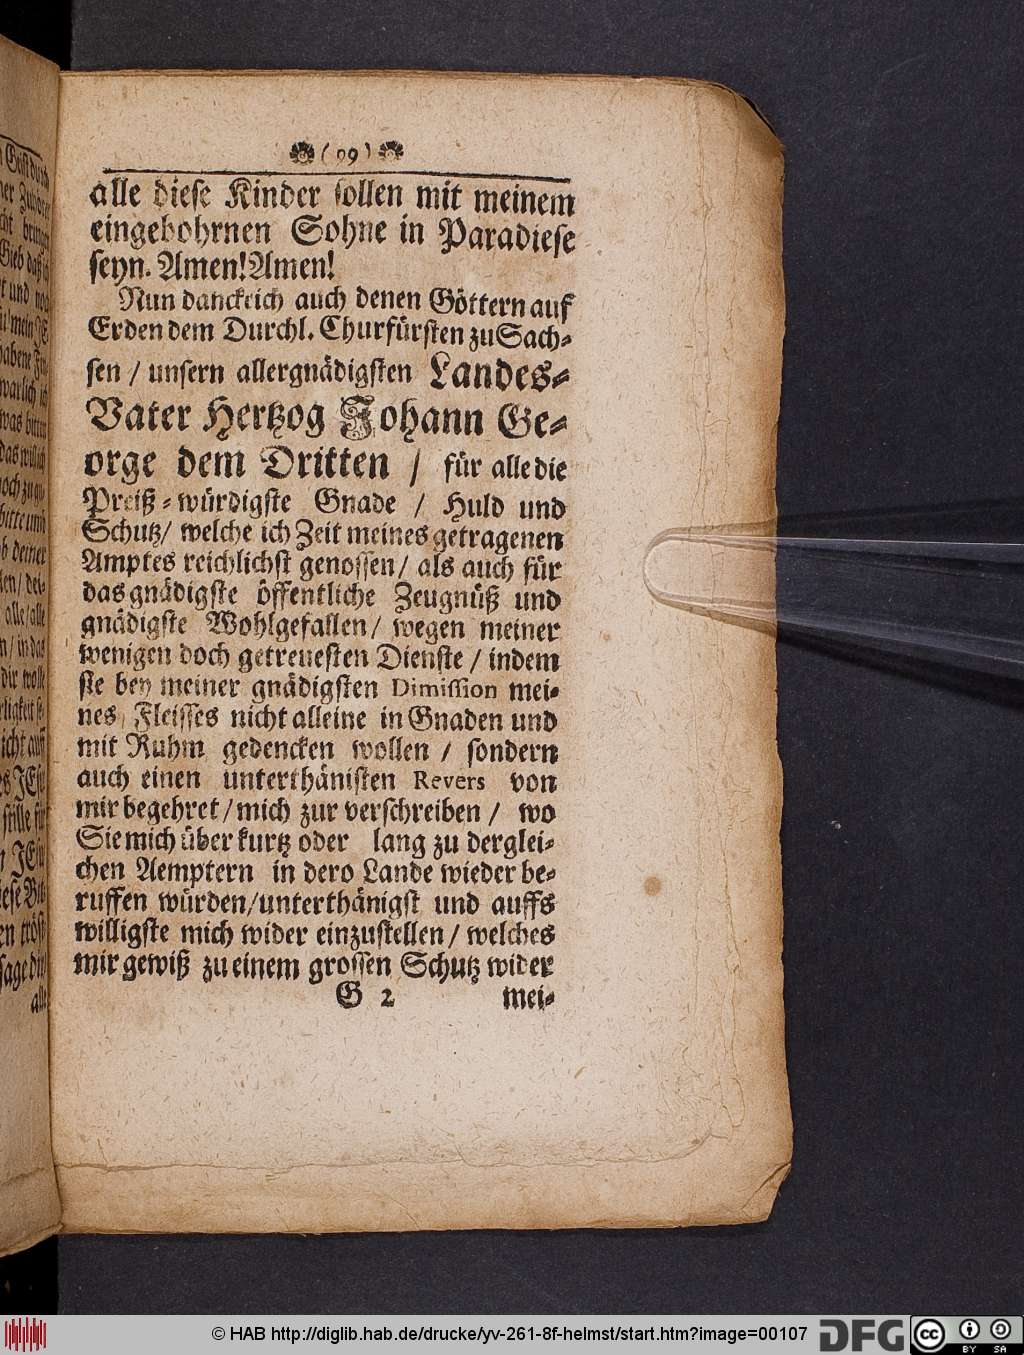 ( 99 )
alle diese Kinder sollen mit meinem
eingebohrnen Sohne in Paradiese
seyn. Amen! Amen!
Nun danck ich auch denen Göttern auf
Erden dem Durchl. Churfürsten zu Sach-
sen / unsern allergnädigsten Landes-
Vater Hertzog Johann Ge-
orge dem Dritten / für alle die
Preiß-würdigste Gnade / Huld und
Schutz / welche ich Zeit meines getragenen
Amptes reichlichst genossen / als auch für
das gnädigste öffentliche Zeugnüß und
gnädigste Wohlgefallen / wegen meiner
wenigen doch getreuesten Dienste / indem
sie bey meiner gnädigsten Dimission mei-
nes Fleisses nicht alleine in Gnaden und
mit Ruhm gedencken wollen / sondern
auch einen unterthänisten Revers von
mir begehret / mich zur verschreiben / wo
Sie mich über kurtz oder lang zu derglei-
chen Aemptern in dero Lande wieder be-
ruffen würden / unterthänigst und auffs
willigste mich wider einzustellen / welches
mir gewiß zu einem grossen Schutz wider
G 2 mei-
© HAB http://diglib.hab.de/drucke/yv-261-8f-helmst/start.htm?image=00107 DFG cc BY SA